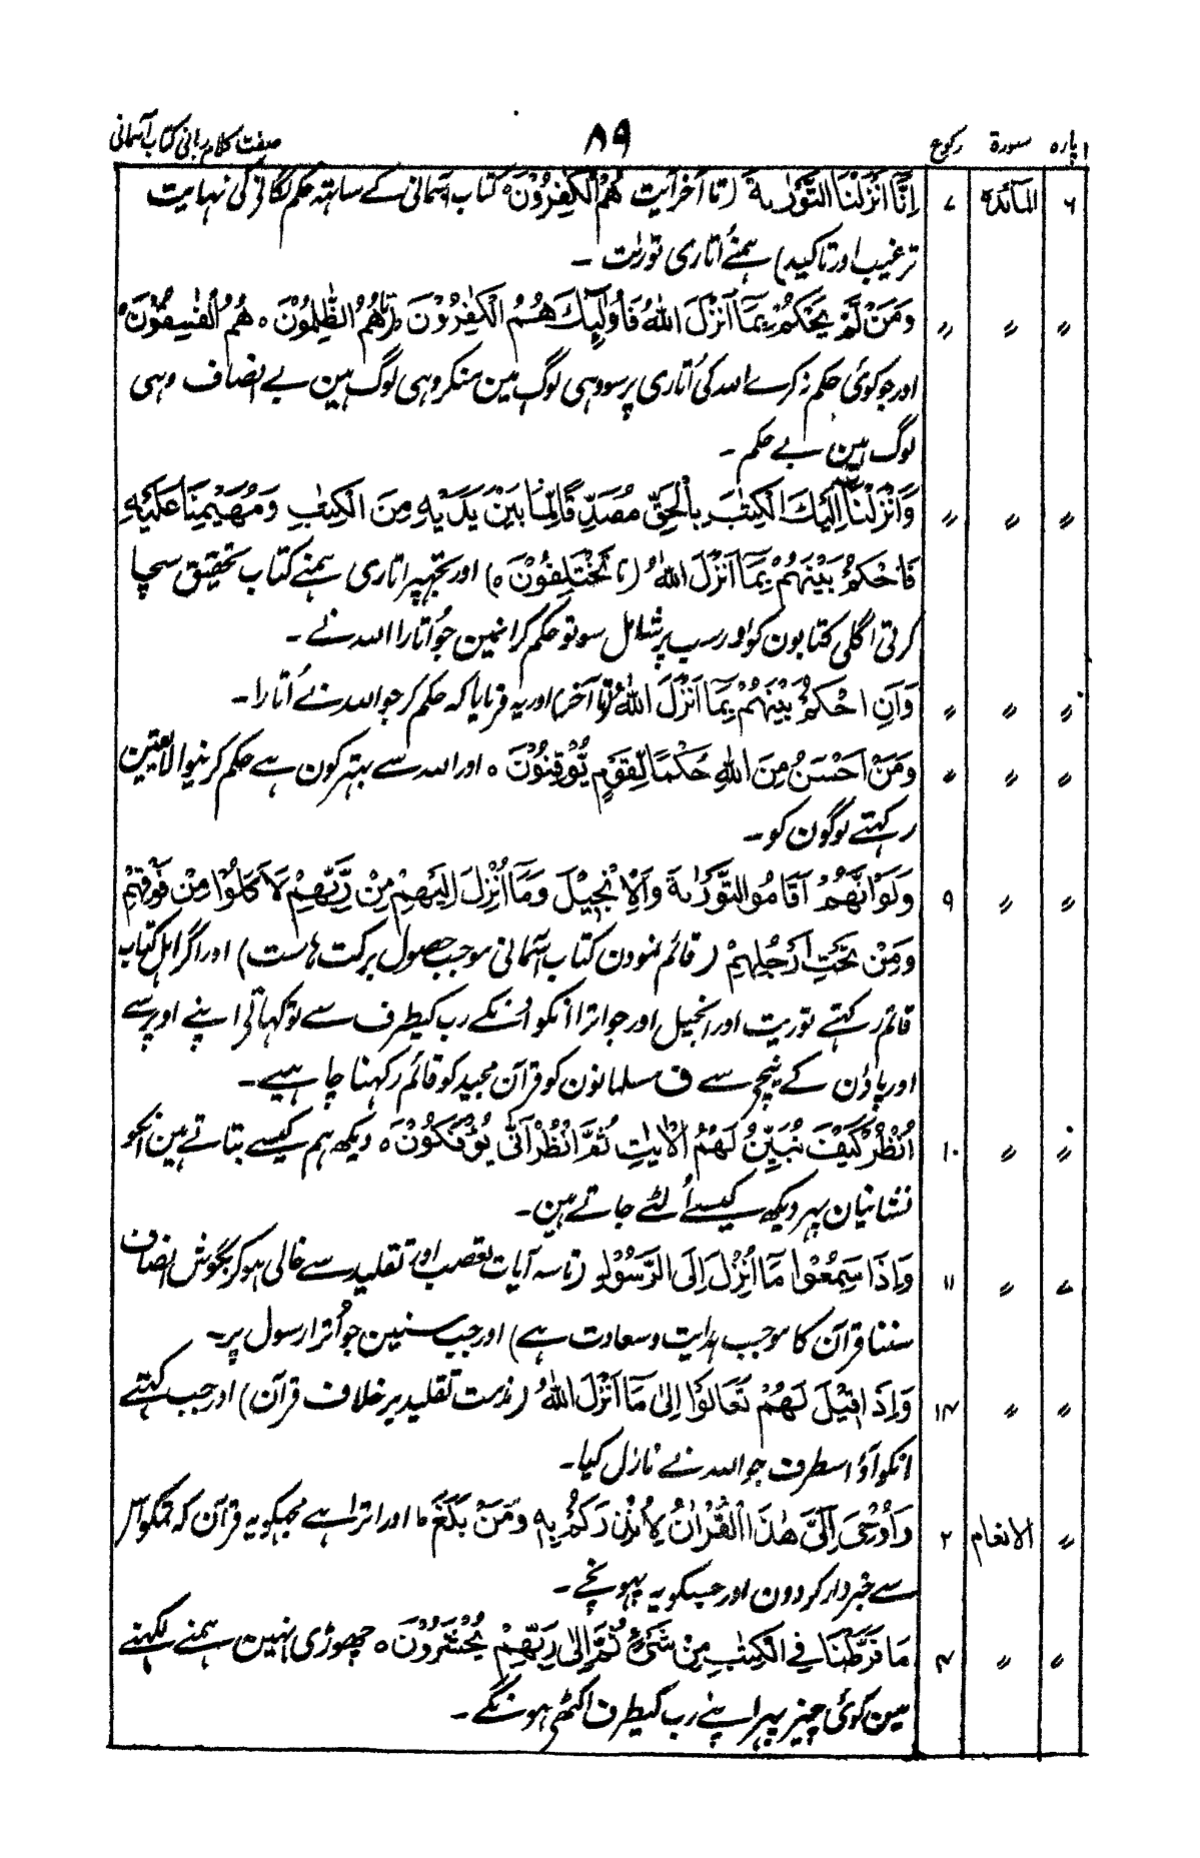 پارہ سورۃ رکوع ۸۹ صفت کلام ربانی کتاب آسمانی
۶ المائدہ ۷ اِنَّا اَنْزَلْنَا التَّوْرٰىةَ (تا آخر آیت هُمُ الْكٰفِرُوْنَ ۝ کتاب آسمانی کے ساتھ حکم لگانیکی نہایت
ترغیب اور تاکید) ہمنے اُتاری توریت ۔
〃 〃 〃 وَمَنْ لَّمْ يَحْكُمْ بِمَا اَنْزَلَ اللّٰهُ فَاُولٰٓئِكَ هُمُ الْكٰفِرُوْنَ (تا هُمُ الظّٰلِمُوْنَ ۝ هُمُ الْفٰسِقُوْنَ ۝
اور جو کوئی حکم نہ کرے اللہ کی اُتاری پر سو وہی لوگ ہین منکر وہی لوگ ہین بے انصاف وہی
لوگ ہین بے حکم ۔
〃 〃 〃 وَاَنْزَلْنَآ اِلَيْكَ الْكِتٰبَ بِالْحَقِّ مُصَدِّقًا لِّمَا بَيْنَ يَدَيْهِ مِنَ الْكِتٰبِ وَمُهَيْمِنًا عَلَيْهِ
فَاحْكُمْ بَيْنَهُمْ بِمَآ اَنْزَلَ اللّٰهُ (تا تَخْتَلِفُوْنَ ۝) اور تجھپر اتاری ہمنے کتاب تحقیق سچا
کرتی اگلی کتابون کو اور سب پر شامل سو تو حکم کر انمین جو اُتارا اللہ نے ۔
〃 〃 〃 وَاَنِ احْكُمْ بَيْنَهُمْ بِمَآ اَنْزَلَ اللّٰهُ (تا آخر) اور یہ فرمایا کہ حکم کر جو اللہ نے اُتارا ۔
〃 〃 〃 وَمَنْ اَحْسَنُ مِنَ اللّٰهِ حُكْمًا لِّقَوْمٍ يُّوْقِنُوْنَ ۝ اور اللہ سے بہتر کون ہے حکم کرنیوالا یقین
رکہتے لوگون کو ۔
〃 〃 ۹ وَلَوْ اَنَّهُمْ اَقَامُوا التَّوْرٰىةَ وَالْاِنْجِيْلَ وَمَآ اُنْزِلَ اِلَيْهِمْ مِّنْ رَّبِّهِمْ لَاَكَلُوْا مِنْ فَوْقِهِمْ
وَمِنْ تَحْتِ اَرْجُلِهِمْ (قائم نمودن کتاب آسمانی موجب حصول برکت ہاست) اور اگر اہل کتاب
قائم رکہتے توریت اور انجیل اور جو اترا انکو اُنکے رب کیطرف سے تو کہاتے اپنے اوپر سے
اور پاؤن کے نیچے سے ف مسلمانون کو قرآن مجید کو قائم رکہنا چاہیے ۔
〃 〃 ۱۰ اُنْظُرْ كَيْفَ نُبَيِّنُ لَهُمُ الْاٰيٰتِ ثُمَّ انْظُرْ اَنّٰى يُؤْفَكُوْنَ ۝ دیکھ ہم کیسے بتاتے ہین انکو
نشانیان پہر دیکھ کیسے اُلٹے جاتے ہین ۔
〃 〃 ۱۱ وَاِذَا سَمِعُوْا مَآ اُنْزِلَ اِلَى الرَّسُوْلِ (تا سہ آیات تعصب اور تقلید سے خالی ہو کر بگوش انصاف
سننا قرآن کا موجب ہدایت و سعادت ہے) اور جب سنین جو اُترا رسول پر ۔
〃 〃 ۱۴ وَاِذَا قِيْلَ لَهُمْ تَعَالَوْا اِلٰى مَآ اَنْزَلَ اللّٰهُ (مذمت تقلید بر خلاف قرآن) اور جب کہتے
انکو آؤ اسطرف جو اللہ نے نازل کیا ۔
〃 الانعام ۲ وَاُوْحِيَ اِلَيَّ هٰذَا الْقُرْاٰنُ لِاُنْذِرَكُمْ بِهٖ وَمَنْ بَلَغَ ۝ اور اترا ہے مجھکو یہ قرآن کہ تمکو اس
سے خبردار کردون اور جسکو یہ پہونچے ۔
〃 〃 ۴ مَا فَرَّطْنَا فِي الْكِتٰبِ مِنْ شَيْءٍ ثُمَّ اِلٰى رَبِّهِمْ يُحْشَرُوْنَ ۝ چھوڑی نہین ہمنے لکہنے
مین کوئی چیز پہر اپنے رب کیطرف اکٹھے ہونگے ۔